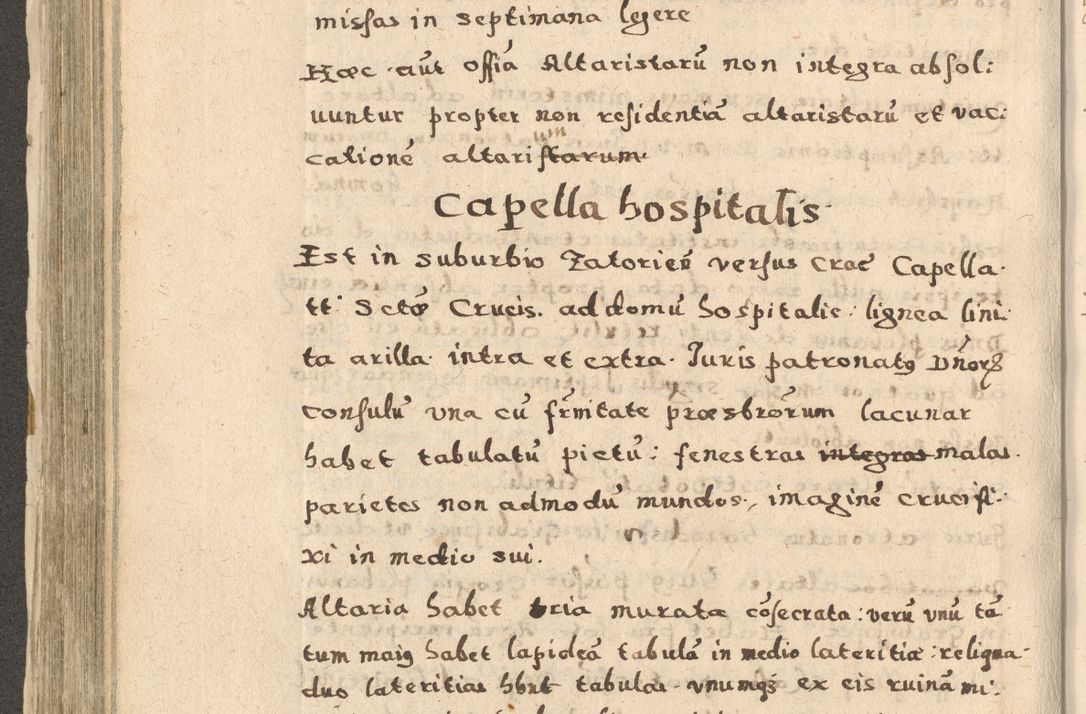 missas in septimana legere
Haec aūt offīa Altaristarū non integra absol:
uuntur propter non residentiā altaristarū et vac:
cationē altaristarum um
Capella hospitalis
Est in suburbio Zatorien̄ versus Crac Capella
tt: S ctae Crucis. ad domū hospitalis lignea lini:
ta arilla intra et extra. Iuris patronatꝰ Dn̄orꝫ
Consulū vna cū fr̄nitate praesbrōrum lacunar
habet tabulatū pictū: fenestras integras malas.
parietes non admodū mundos, imaginē crucifi:
xi in medio sui.
Altaria habet tria murata cōsecrata: verū vnū tā
tum maiꝰ habet lapideā tabulā in medio lateritiae: reliqua
duo lateritias hbnt tabulas. vnumqꝫ ex eis ruinā mi: